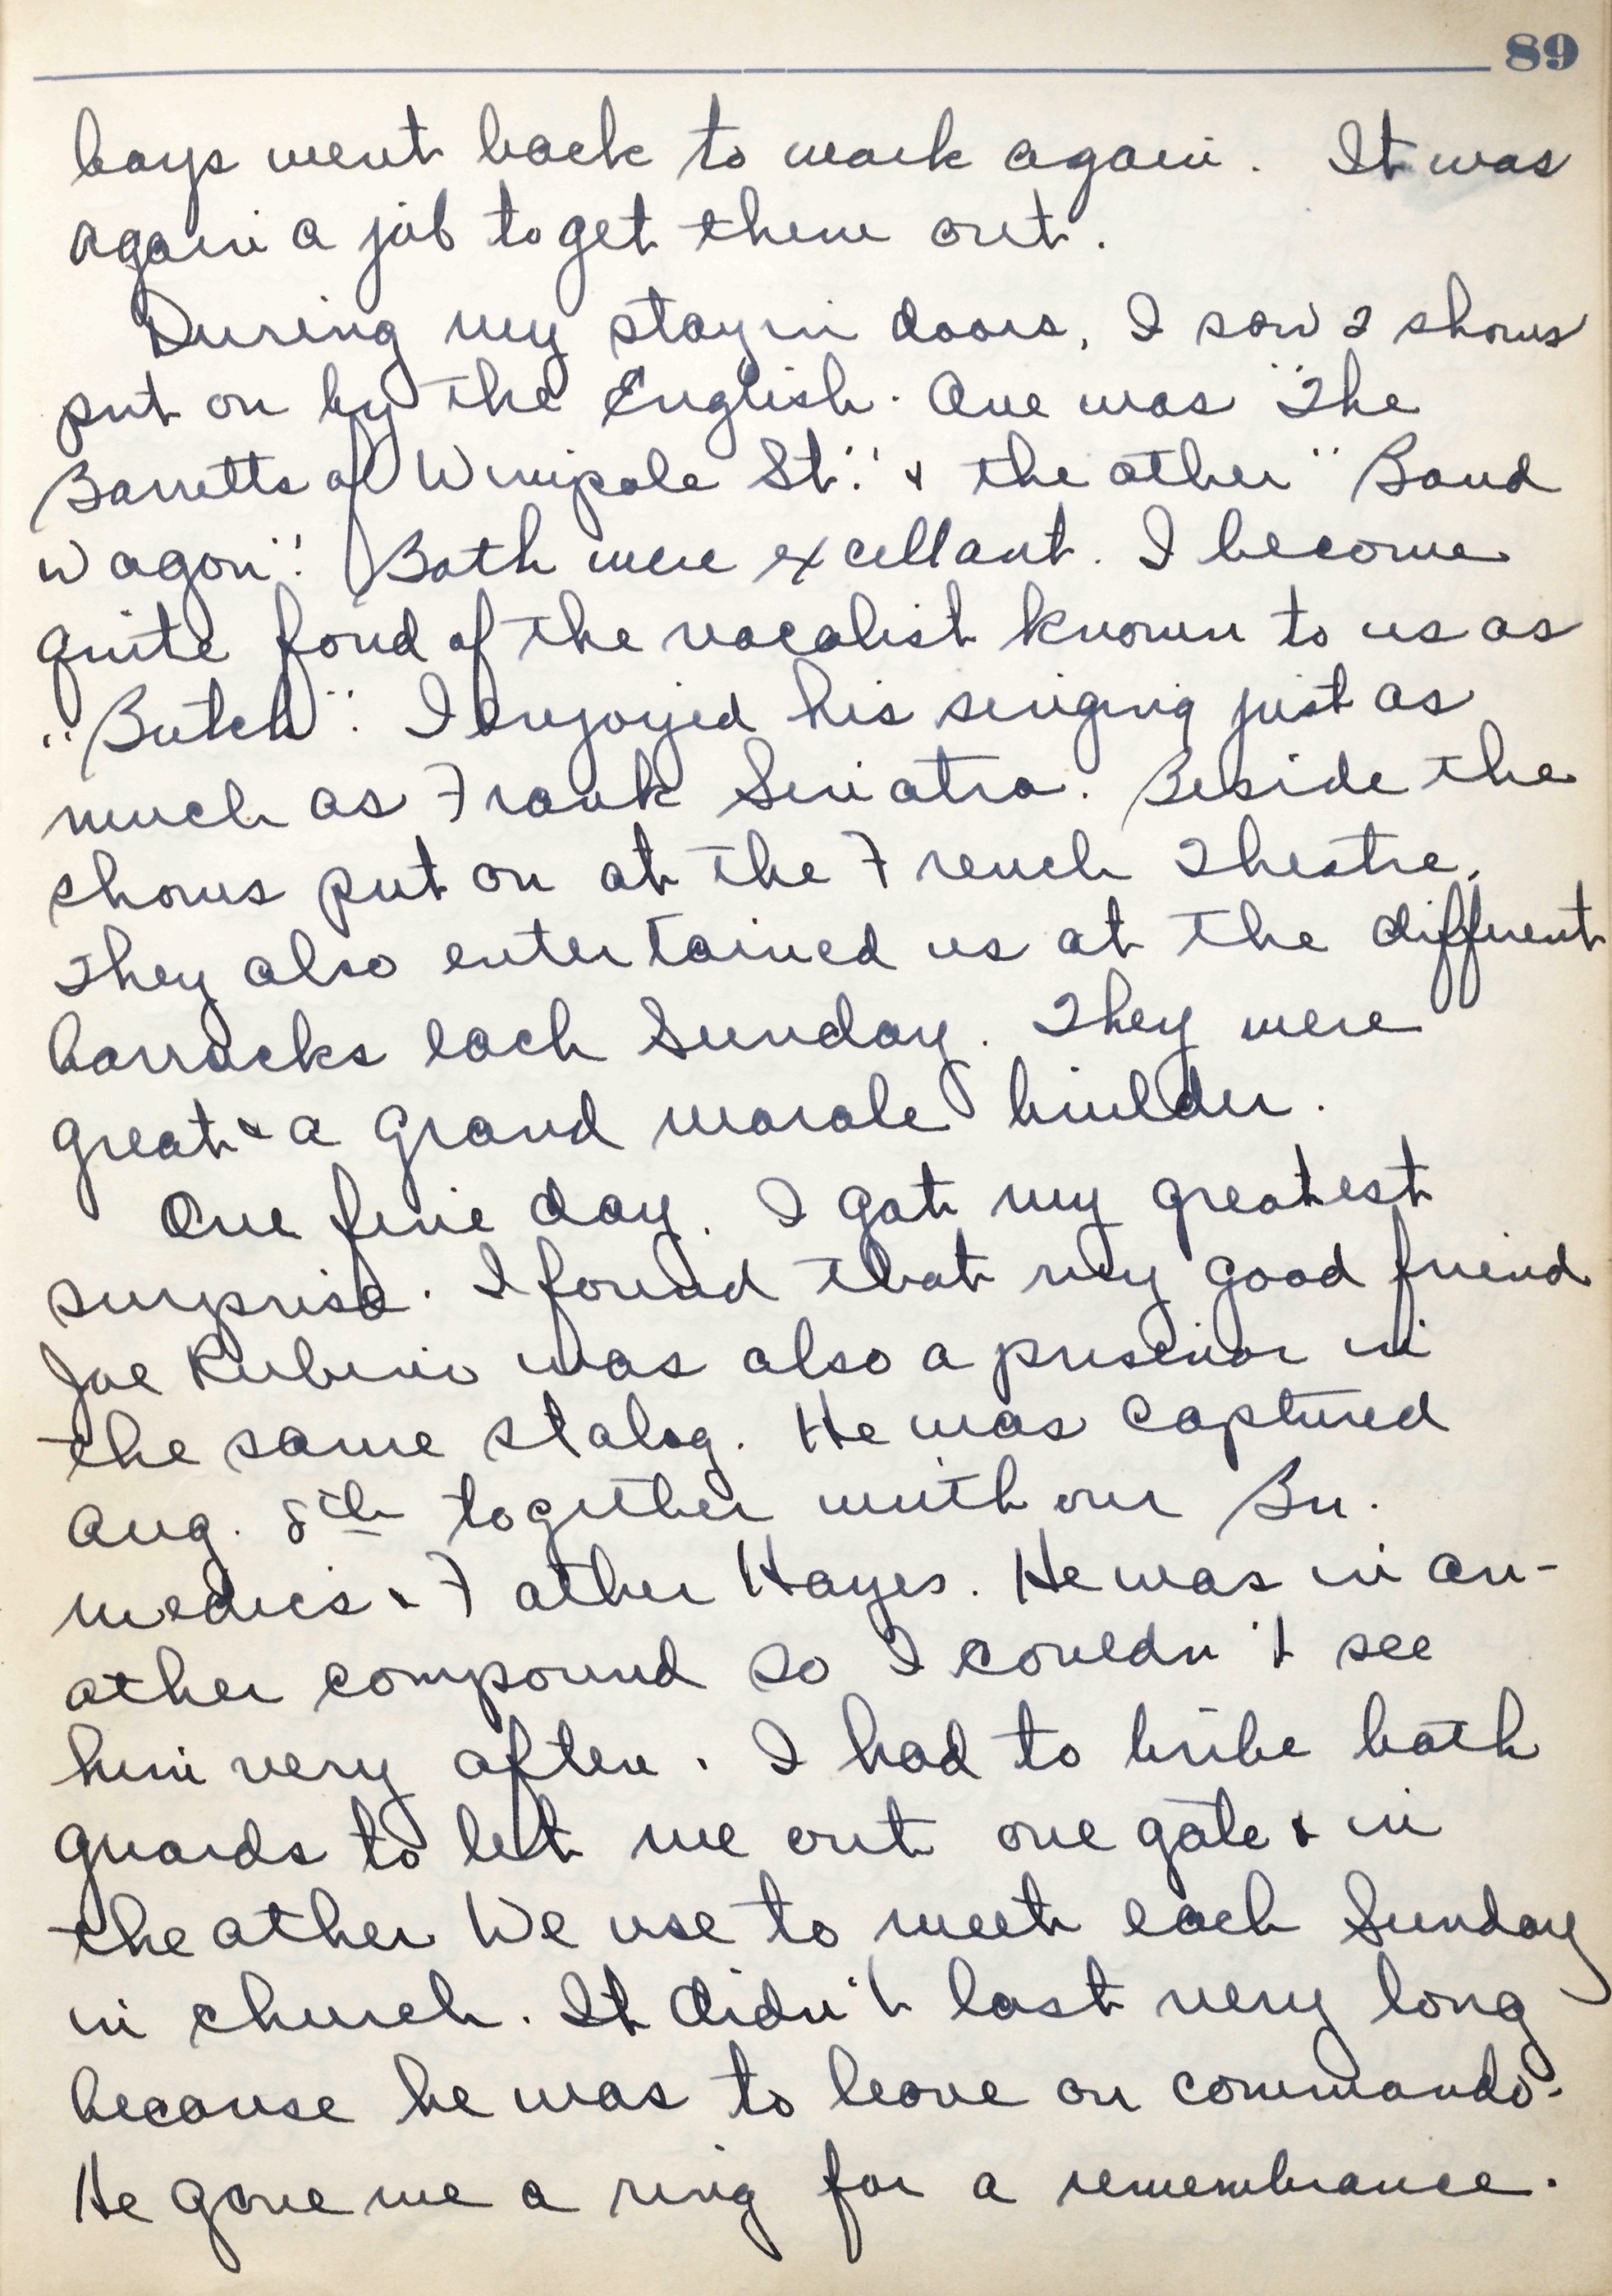 89
boys went back to work again. It was
again a job to get them out.
During my stay in doors, I saw 2 shows
put on by the English. One was "The
Barretts of Wimpole St." & the other "Band
wagon". Both were excellant. I become
quite fond of the vocalist known to us as
"Butch". I enjoyed his singing just as
much as Frank Sinatra. Beside the
shows put on at the French Theatre,
They also entertained us at the different
barracks each Sunday. They were
great & a grand morale builder.
One fine day. I got my greatest
surprise. I found that my good friend
Joe Rubino was also a prisenor in
the same stalag. He was captured
Aug. 8th together with our Bn.
medics & Father Hayes. He was in an-
other compound so I couldn't see
him very often. I had to bribe both
guards to let me out one gate & in
the other We use to meet each Sunday
in church. It didn't last very long
because he was to leave on commando.
He gave me a ring for a remembrance.